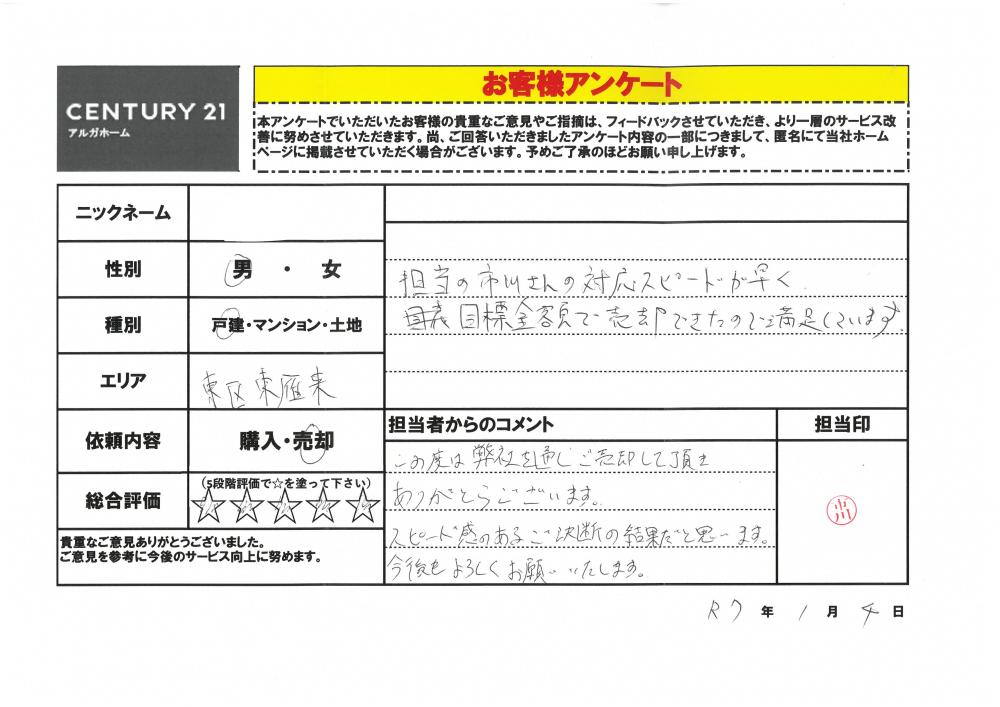 CENTURY 21
アルガホーム
お客様アンケート
本アンケートでいただいたお客様の貴重なご意見やご指摘は、フィードバックさせていただき、より一層のサービス改
善に努めさせていただきます。尚、ご回答いただきましたアンケート内容の一部につきまして、匿名にて当社ホーム
ページに掲載させていただく場合がございます。予めご了承のほどお願い申し上げます。
ニックネーム
性別
男 ・ 女
種別
戸建・マンション・土地
エリア
東区東雁来
依頼内容
購入・売却
総合評価
(5段階評価で☆を塗って下さい)
貴重なご意見ありがとうございました。
ご意見を参考に今後のサービス向上に努めます。
担当の市川さんの対応スピードが早く
目標金額で売却できたので満足しています。
担当者からのコメント
この度は弊社を通じご売却して頂き
ありがとうございます。
スピード感のあるご決断の結果だと思います。
今後もよろしくお願いいたします。
担当印
市川
R7年1月4日